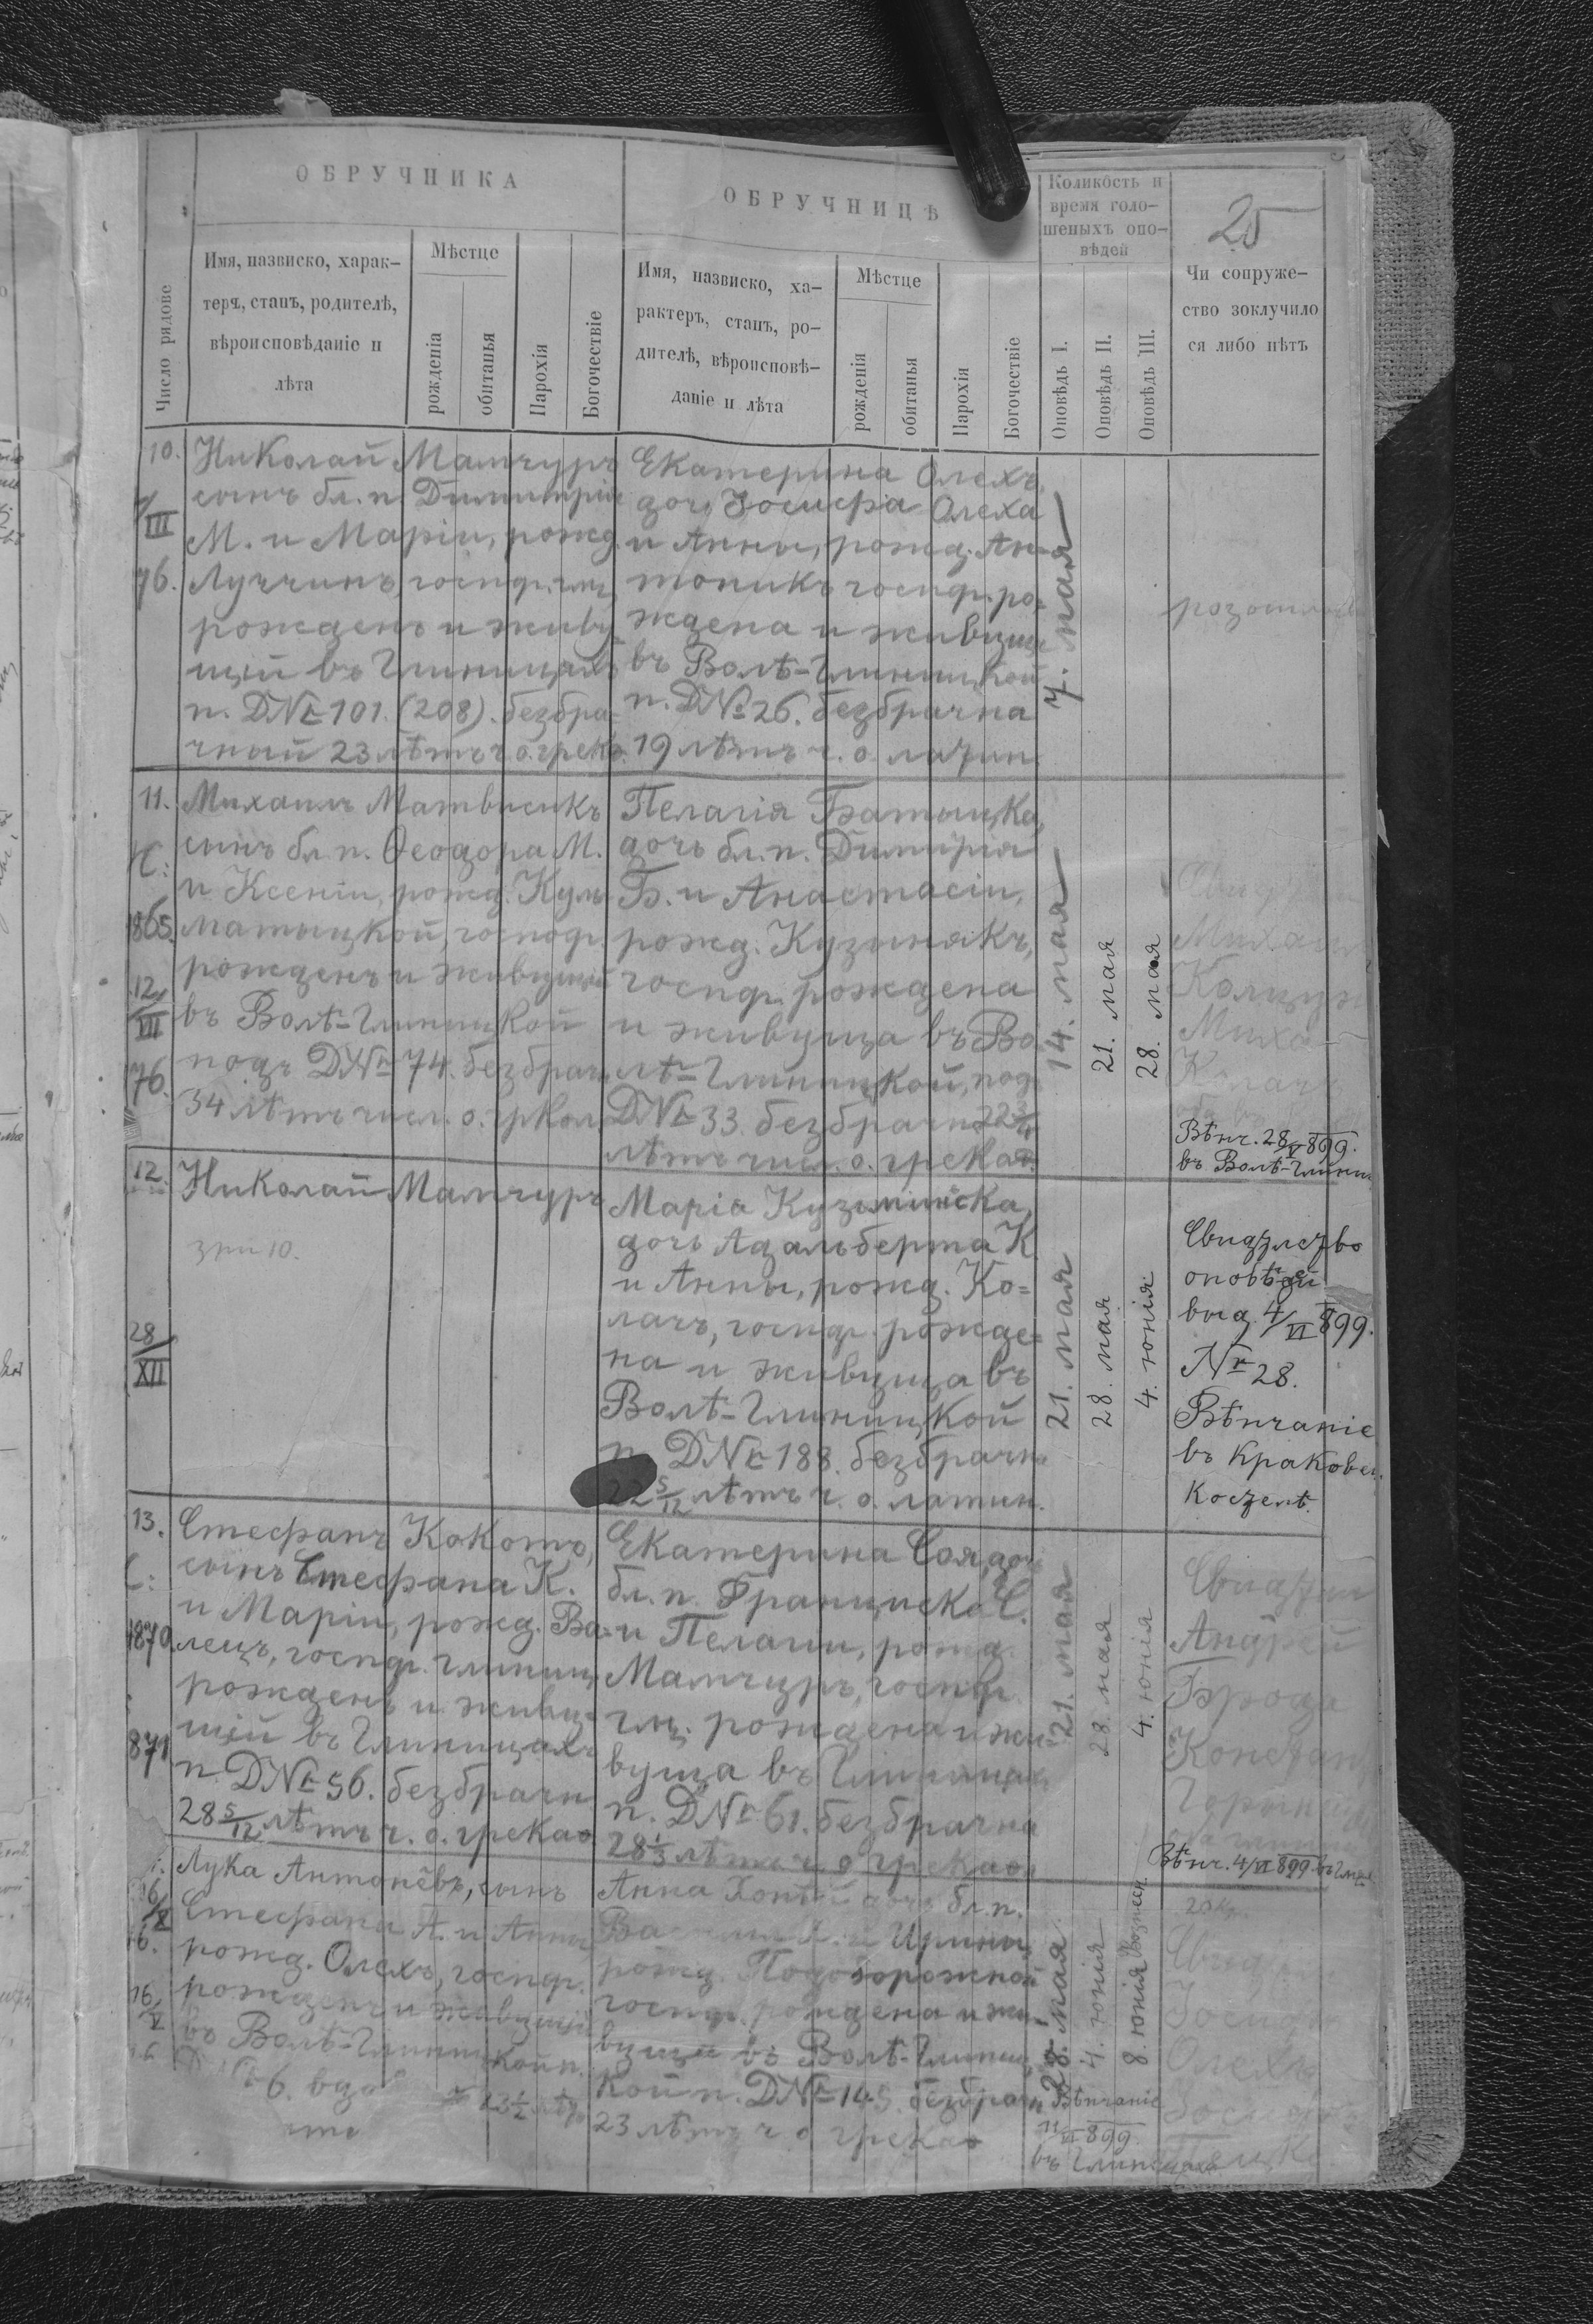 25
ОБРУЧНИКА
ОБРУЧНИЦѢ
Число рядове
Имя, назвиско, харак-
теръ, станъ, родителѣ,
вѣроисповѣданіе и
лѣта
Мѣстце
рожденіа
обитанья
Парохія
Богочествіе
Имя, назвиско, ха-
рактеръ, станъ, ро-
дителѣ, вѣроисповѣ-
даніе и лѣта
Мѣстце
рожденія
обитанья
Парохія
Богочествіе
Коликость и
время голо-
шеныхъ опо-
вѣдей
Оповѣдь I.
Оповѣдь II.
Оповѣдь III.
Чи сопруже-
ство зоключило
ся либо нѣтъ
10.
III
76.
Николай Мамчуръ
сынъ бл. п. Димитрія
М. и Маріи, рожд.
Луччинъ, госпдр. глц.
рожденъ и живу
щій въ Глиницахъ
п. DNr 101. (208). безбра-
чный 23 лѣтъ ч. о. греко.
Екатерина Олехъ,
дочь Іосифа Олеха
и Анны, рожд. Ан-
тоникъ госпдр. ро-
ждена и живуща
въ Волѣ-Глиницкой
п. DNo 26. безбрачна
19 лѣтъ ч. о. латин.
7. мая
11.
1865.
12/VII
76.
Михаилъ Матвисикъ
сынъ бл. п. Ѳеодора М.
и Ксеніи, рожд. Кул-
матыцкой, господр.
рожденъ и живущій
въ Волѣ-Глиницкой
подъ DNr 74. безбрач.
34 лѣтъ числ. о. грkкол.
Пелагія Батыцка,
дочь бл. п. Димитрія
Б. и Анастасіи,
рожд. Кузьнякъ,
госпдр. рождена
и живуща въ Во-
лѣ-Глиницкой, под
DNr 33. безбрачна 22 3/4
лѣтъ числ. о. грекаѳ.
14. мая
21. мая
28. мая
Михаил
Миха
Вѣнч. 28/V 899.
въ Волѣ-Глиниц.
12.
28/XII
Николай Мамчуръ
зри 10.
Маріа Кузьминска,
дочь Адальберта К.
и Анны, рожд. Ко-
лачъ, госпдр. рожде-
на и живуща въ
Волѣ-Глиницкой
п. DNr 188. безбрачн
22 5/12 лѣтъ ч. о. латин.
21. мая
28. мая
4. юнія
Свидѣтельство
оповѣдей
выд. 4/VI 899.
Nr 28.
Вѣнчаніе
въ Краковец.
костелѣ.
13.
1870
871
Стефанъ Кокотъ,
сынъ Стефана К.
и Маріи, рожд. Ва-
лецъ, госпдр. глиниц.
рожденъ и живу-
щій въ Глиницахъ
п. DNr 56. безбрачн
28 5/12 лѣтъ ч. о. грекаѳ
Екатерина Соя, доч
бл. п. Франциска С.
и Пелагіи, рожд.
Мамчуръ, госпдр.
глц. рождена и жи-
вуща въ Глиницах
п. DNr 61. безбрачна
28 1/3 лѣтъ ч. о. грекаѳ.
21. мая
28. мая
4. юнія
Андрей
Брода
Констан
Вѣнч. 4/VI 899. въ Глиц
16/V
Лука Антонѣвъ, сынъ
Стефана А. и Анны
рожд. Олехъ, госпдр.
рожденъ и живущій
въ Волѣ-Глиницкой п.
Анна дочь бл. п.
Ирины,
рожд. Подорожной
госпдр. рождена и жи-
вуща въ Волѣ-Глиниц-
кой п. DNr 145. безбрач.
23 лѣтъ ч. о. грекаѳ
28. мая
4. юнія
8. юнія
Іосифъ
Олехъ
Вѣнчаніе
11/VI 899.
въ Глиницахъ